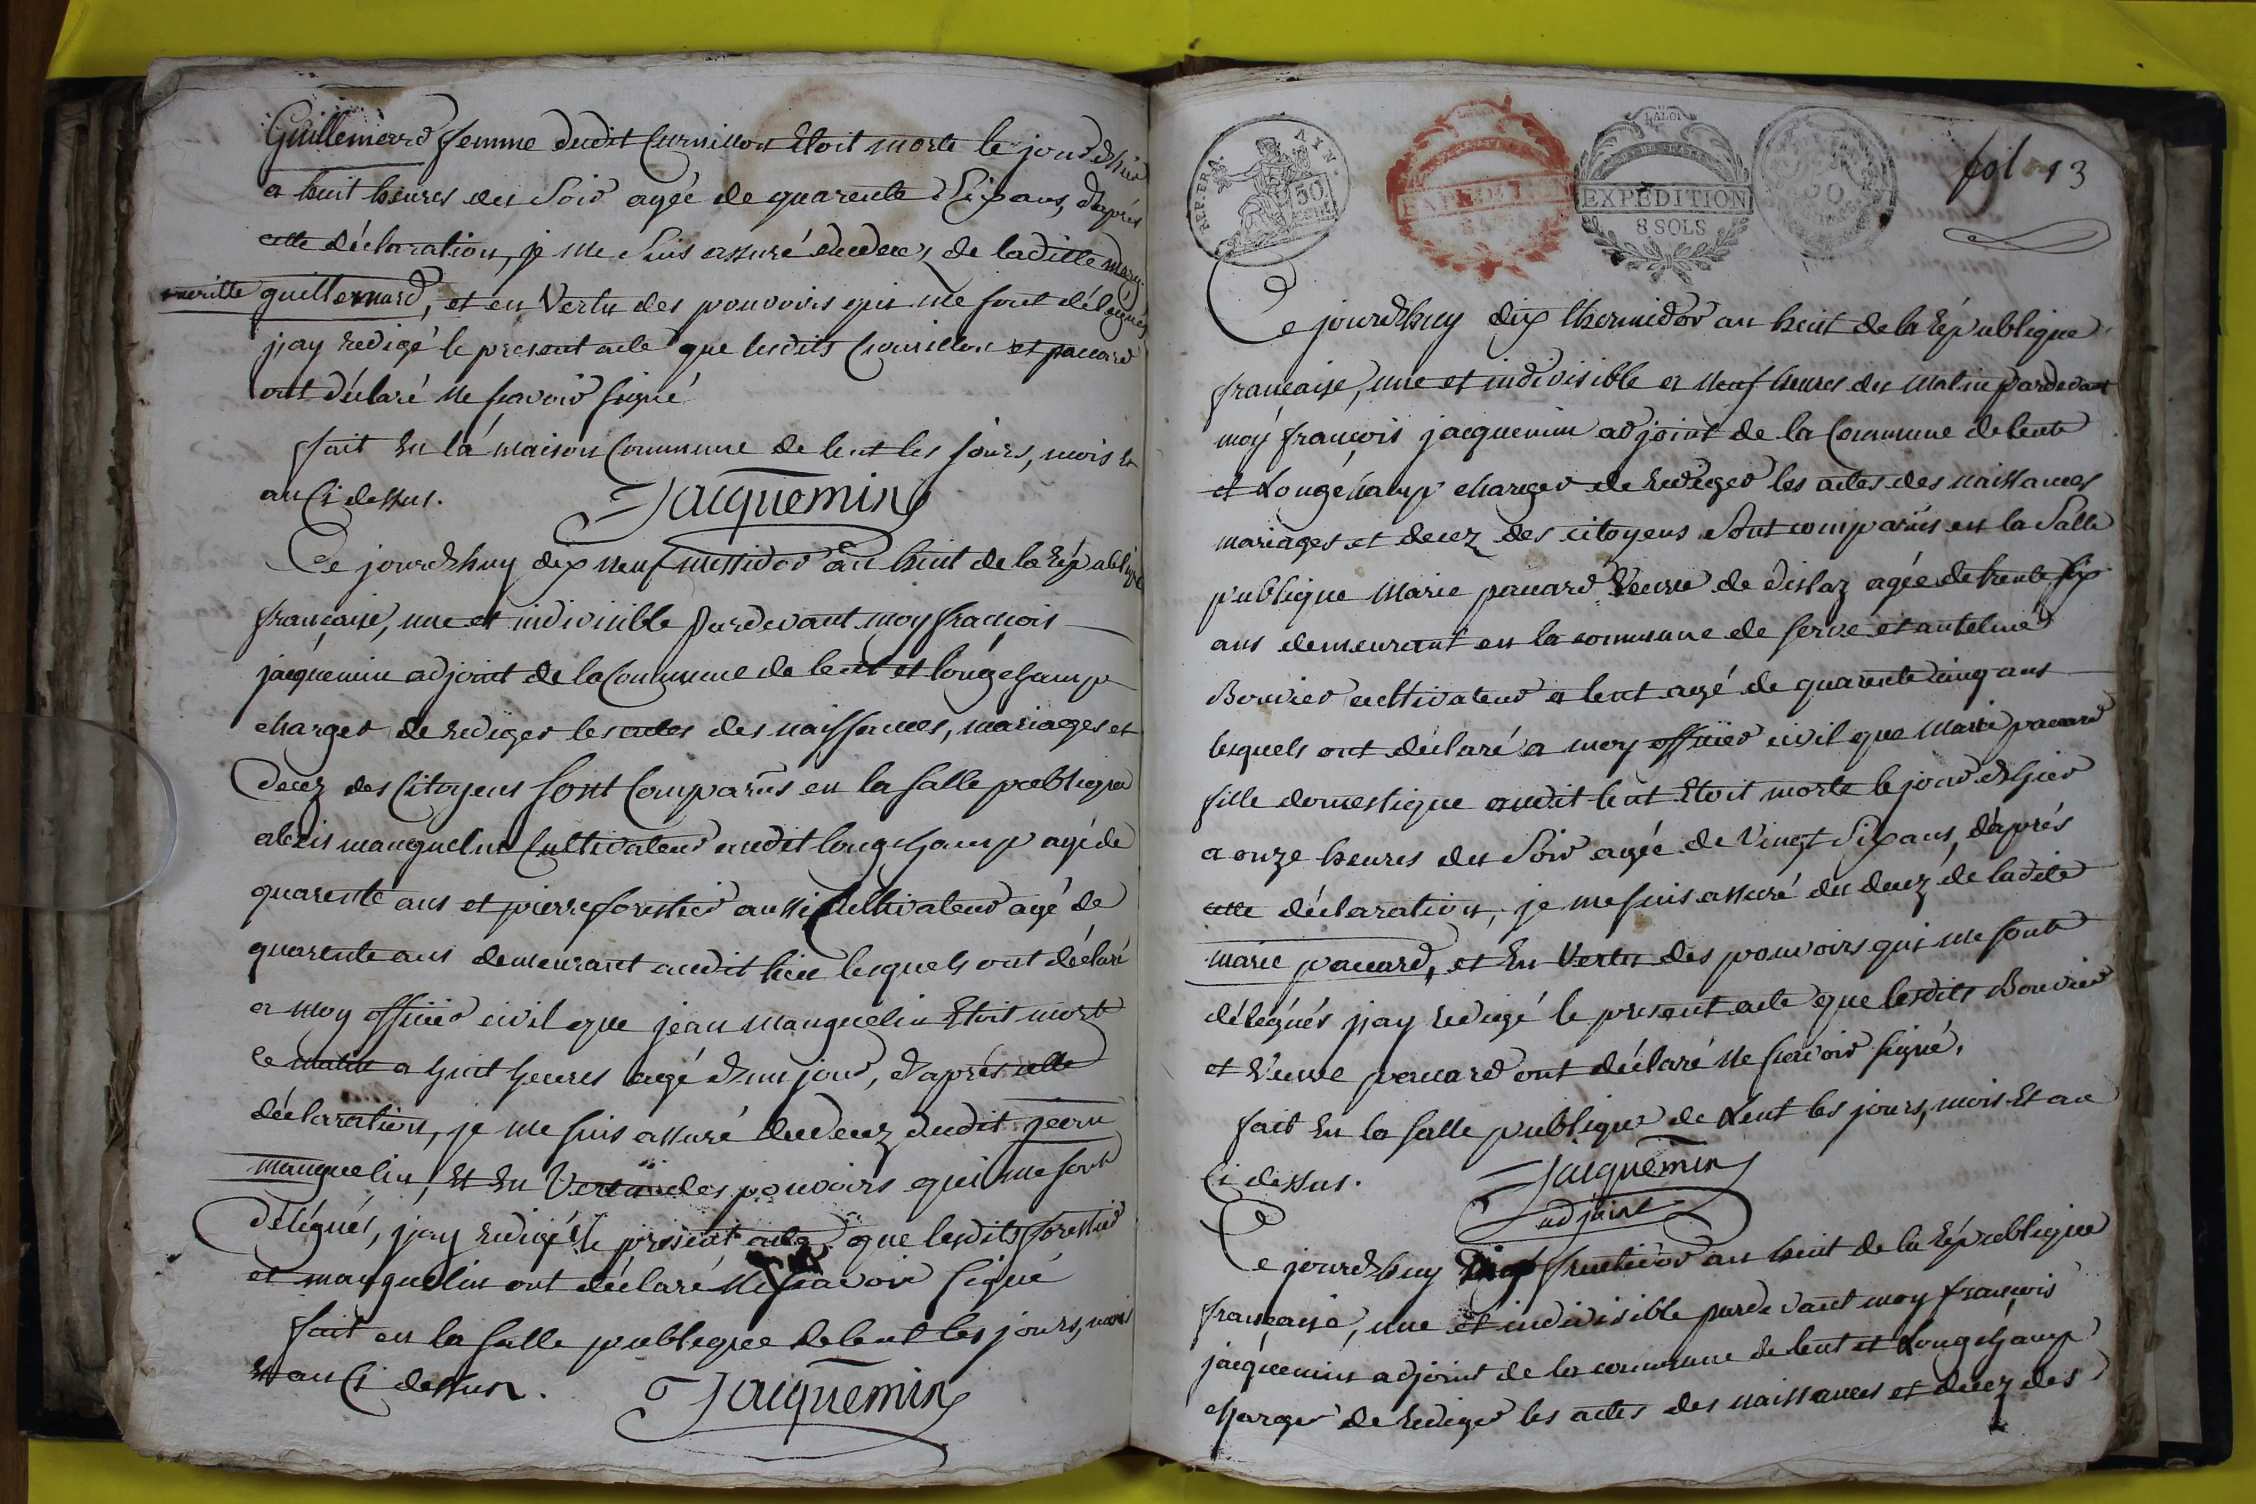 Guillemard femme dudit Curnillon Etoit morte le jour d'hier
a huit heures du Soir agée de quarente Six ans, d'aprés
cette déclaration, je me Suis assuré du decez de laditte mary
guillemard, et en Vertu des pouvoirs qui me sont délégués
j'jay redigé le present acte que lesdits et pacard
ont déclaré ne scavoir signé
fait En la maison Commune de lent les jours, mois Et
an Ci dessus.
Jacquemin
Ce jourdhuy dix neuf messidor an huit de la République
française, une et indivisible Pardevant moy françois
jacquemin adjoint de la Commune de lent et longchamp
charger de rediger les actes des naissances, mariages et
decez des Citoyens Sont Comparus en la salle publique
alexis manguelin Cultivateur audit longchamp agé de
quarente ans et pierre forestier aussi Cultivateur agé de
quarente ans demeurant audit lieu lesquels ont déclaré
a moy officier civil que jean manguelin Etoit mort
ce matin a huit heures agé d'un jour, d'aprés cette
déclaration, je me suis assuré du decez dudit jean
manguelin, Et En Vertu des pouvoirs qui me sont
délégués, j'jay redigé le présent acte que lesdits forestier
et manguelin ont déclaré ne scavoir signé
fait en la salle publique de lent les jours, mois
Et an Ci dessus.
Jacquemin
REP. FRA. AYN. 50 CENT.
EXPEDITION
LA LOI
EXPÉDITION
8 SOLS
50
fol 13
Ce jourdhuy dix thermidor an huit de la République
française, une et indivisible a neuf heures du matin pardevant
moy françois jacquemin adjoint de la Commune de lent
et Longchamp charger de rediger les actes des naissances
mariages et decez des citoyens Sont comparus en la Salle
publique Marie pacard Veuve de agée de trente six
ans demeurant en la commune de Serve et antelme
Bouvier cultivateur a lent agé de quarente cinq ans
lesquels ont déclaré a moy officier civil que Marie pacard
fille domestique audit lent Etoit morte le jour d'hier
a onze heures du Soir agée de Vingt Six ans, d'aprés
cette déclaration, je me suis assuré du decez de ladite
marie pacard, et En Vertu des pouvoirs qui me sont
délégués j'jay redigé le present acte que lesdits Bouvier
et Veuve pacard ont déclaré ne scavoir signé,
fait En la salle publique de Lent les jours, mois Et an
Ci dessus.
Jacquemin
adjoint
Ce jourdhuy fructidor an huit de la République
française, une et indivisible pardevant moy françois
jacquemin adjoint de la commune de lent et Longchamp
charger de rediger les actes des naissances et decez des